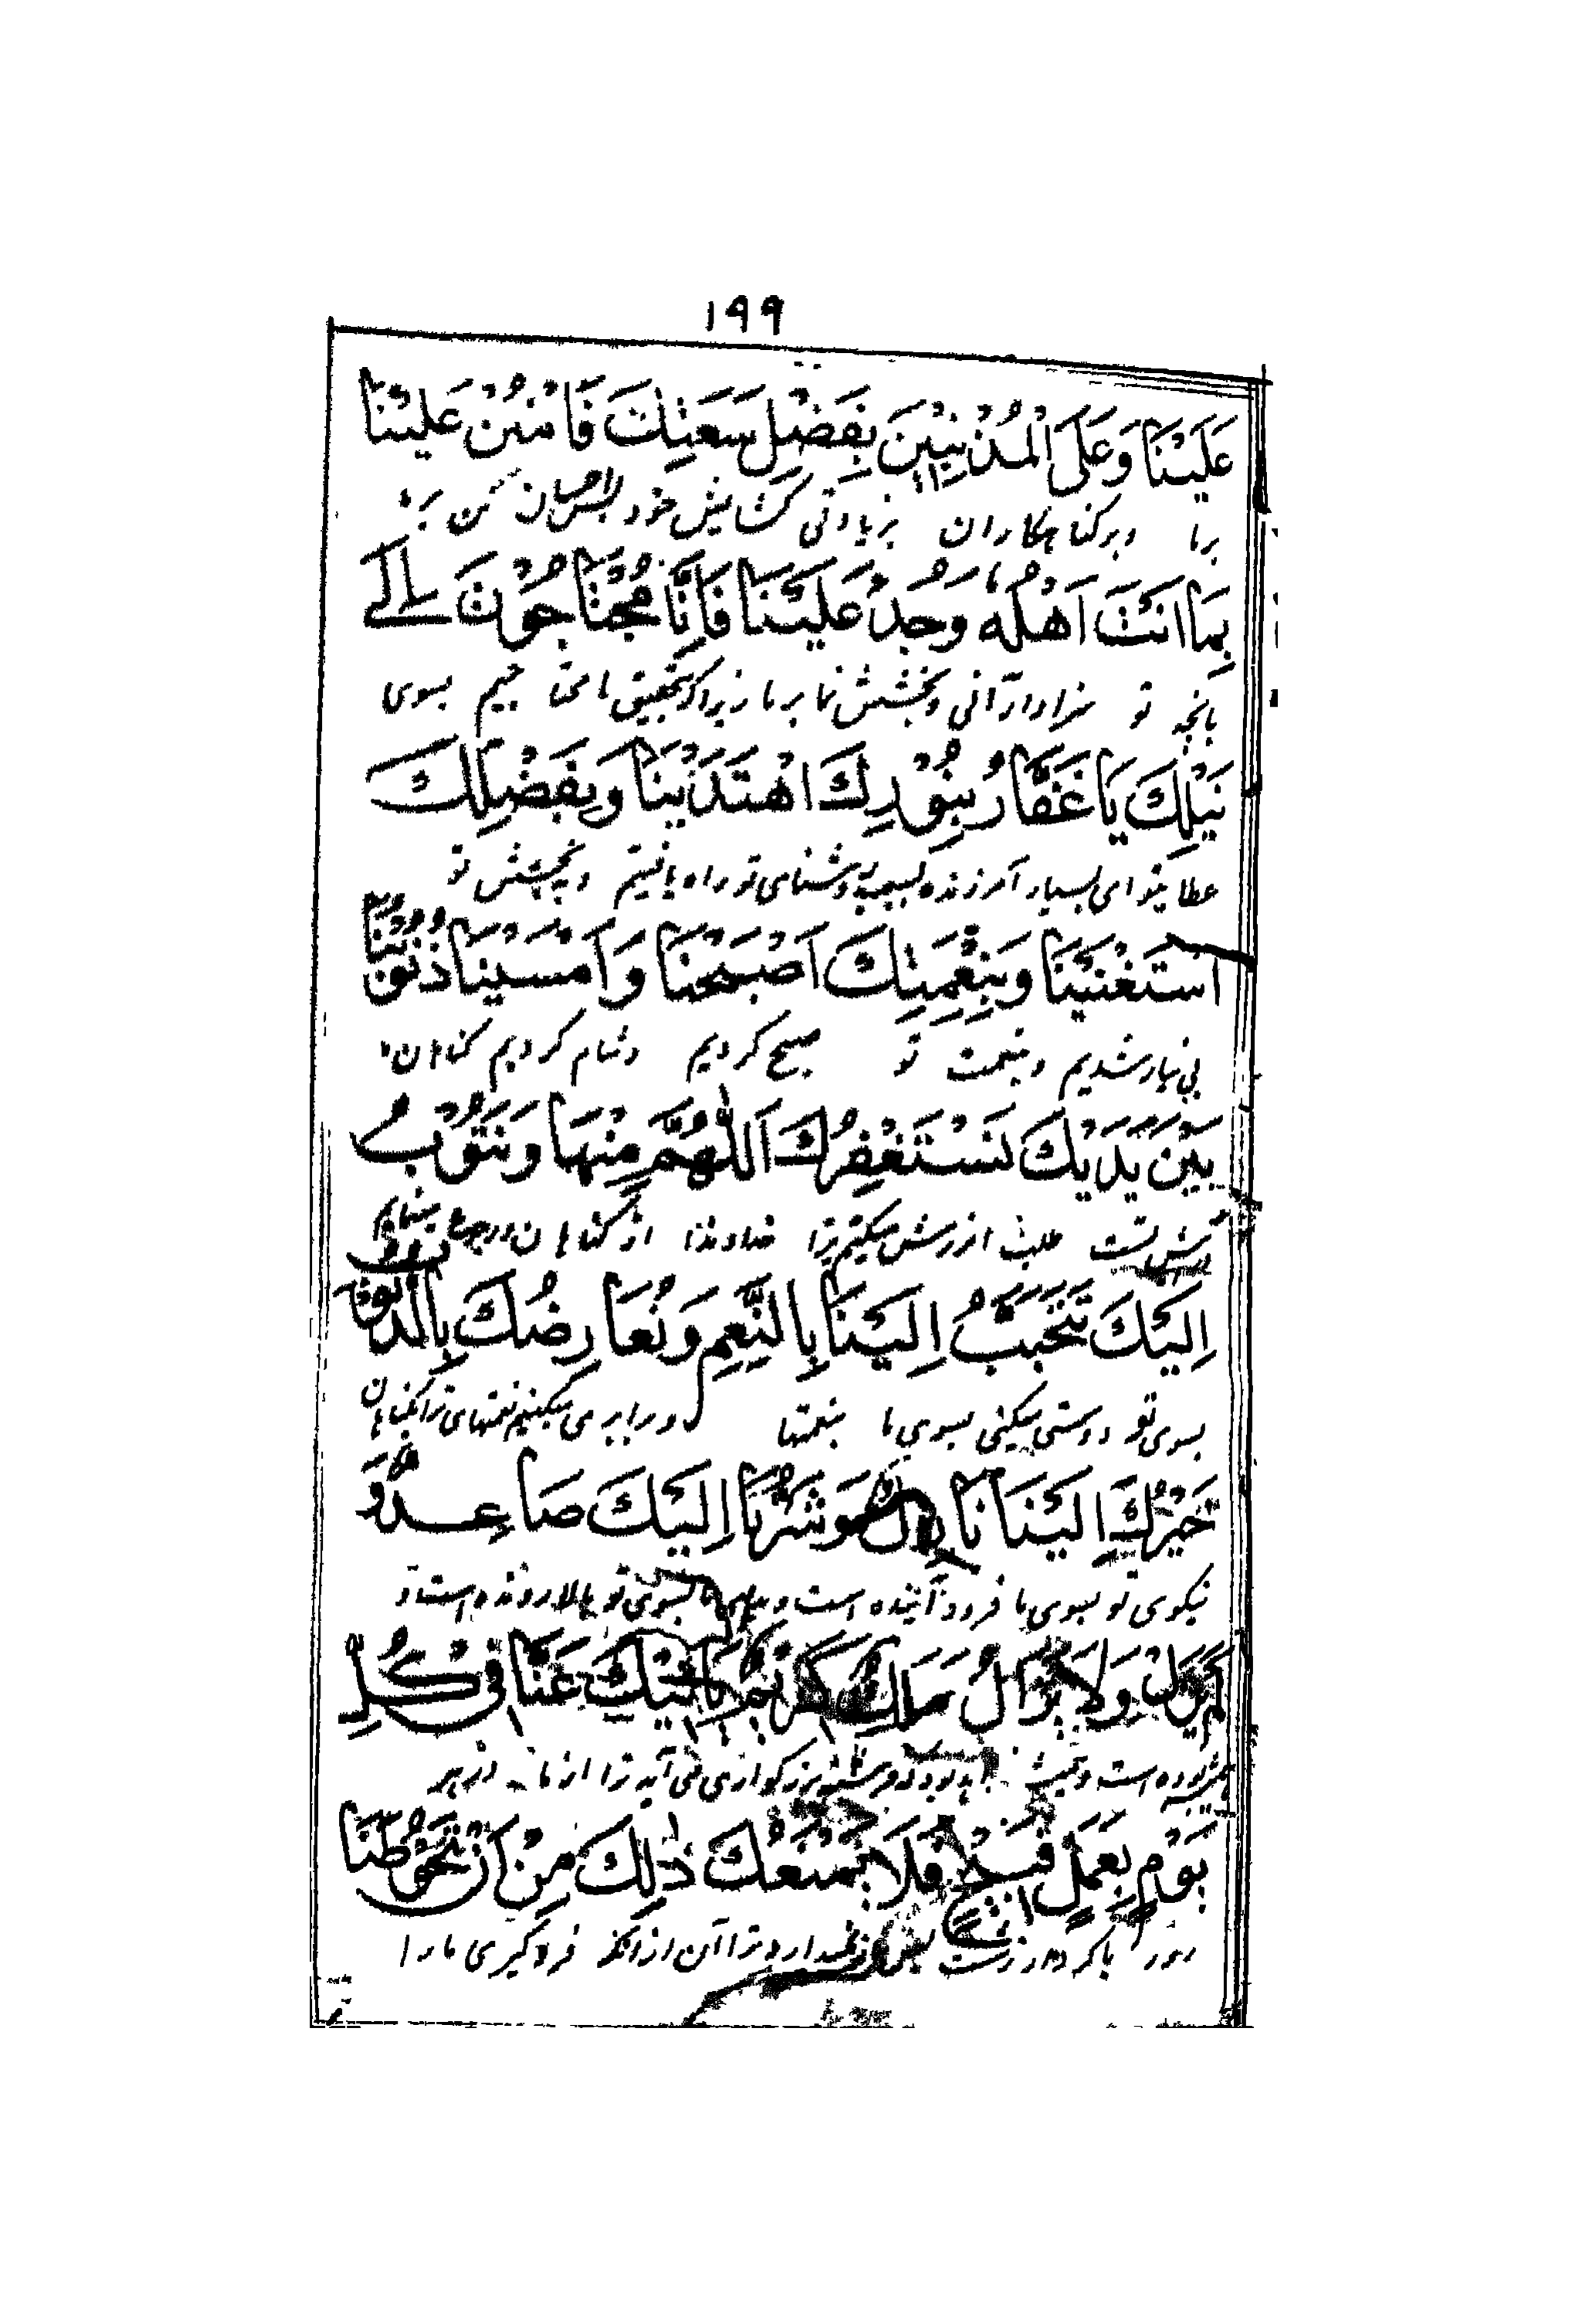 ۱۹۹
عَلَيْنَا وَعَلَى الْمُذْنِبِيْنَ بِفَضْلِ سَعَتِكَ فَامْنُنْ عَلَيْنَا
برما وبر کناهکاران بزیادتی کشایش خود پس احسان کن برما
بِمَا اَنْتَ اَهْلُهُ وَجُدْ عَلَيْنَا فَاِنَّا مُحْتَاجُوْنَ اِلٰى
بانچه تو سزاوار آنی و بخشش نما بر ما زیراکه بتحقیق ما محتاجیم بسوی
نَيْلِكَ يَا غَفَّارُ بِنُوْرِكَ اهْتَدَيْنَا وَبِفَضْلِكَ
عطا یتو ای بسیار آمرزنده بسبب روشنای تو راه یافتیم و به بخشش تو
اسْتَغْنَيْنَا وَبِنِعْمَتِكَ اَصْبَحْنَا وَاَمْسَيْنَا ذُنُوْبُنَا
بی نیاز شدیم و بنعمت تو صبح کردیم و شام کردیم کناهان ما
بَيْنَ يَدَيْكَ نَسْتَغْفِرُكَ اَللّٰهُمَّ مِنْهَا وَنَتُوْبُ
پیش تست طلب امرزش میکنیم ترا خداوندا از کناهان و رجوع مینمایم
اِلَيْكَ تَتَحَبَّبُ اِلَيْنَا بِالنِّعَمِ وَنُعَارِضُكَ بِالذُّنُوْبِ
بسوی تو دوستی میکنی بسوی ما بنعمتها و برابری میکنیم نعمتهای ترا بکناهان
خَيْرُكَ اِلَيْنَا نَازِلٌ وَشَرُّنَا اِلَيْكَ صَاعِدٌ وَّ
نیکوی تو بسوی ما فرود آینده است و بدی ما بسوی تو بالا رونده است و
لَمْ يَزَلْ وَلَا يَزَالُ مَلَكٌ كَرِيْمٌ يَاْتِيْكَ عَنَّا فِى كُلِّ
همیشه بوده است و همیشه بود که فرشته بزرکواری می آید ترا از ما در هر
يَوْمٍ بِعَمَلٍ قَبِيْحٍ فَلَا يَمْنَعُكَ ذٰلِكَ مِنْ اَنْ تَحُوْطَنَا
روز باکردار زشت پس باز نمیدارد ترا آن از آنکه فروکیری ما را